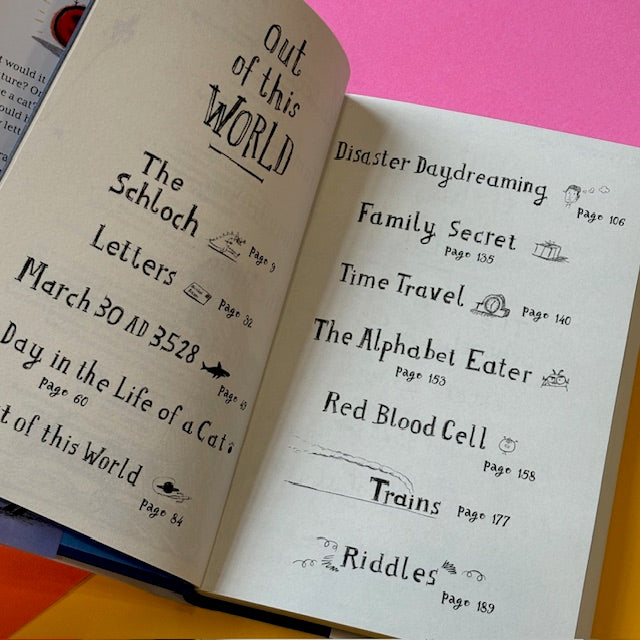 would it
ture? O
e a cat?
ould
lett
Out
of this
WORLD
The
Schloch
Page 9
Letters
Page 32
March 30 AD 3528
Page 49
Day in the Life of a Cat
Page 60
t of this World
Page 84
Disaster Daydreaming
Page 106
Family Secret
Page 135
Time Travel
Page 140
The Alphabet Eater
Page 153
Red Blood Cell
Page 158
Trains
Page 177
Riddles
Page 189